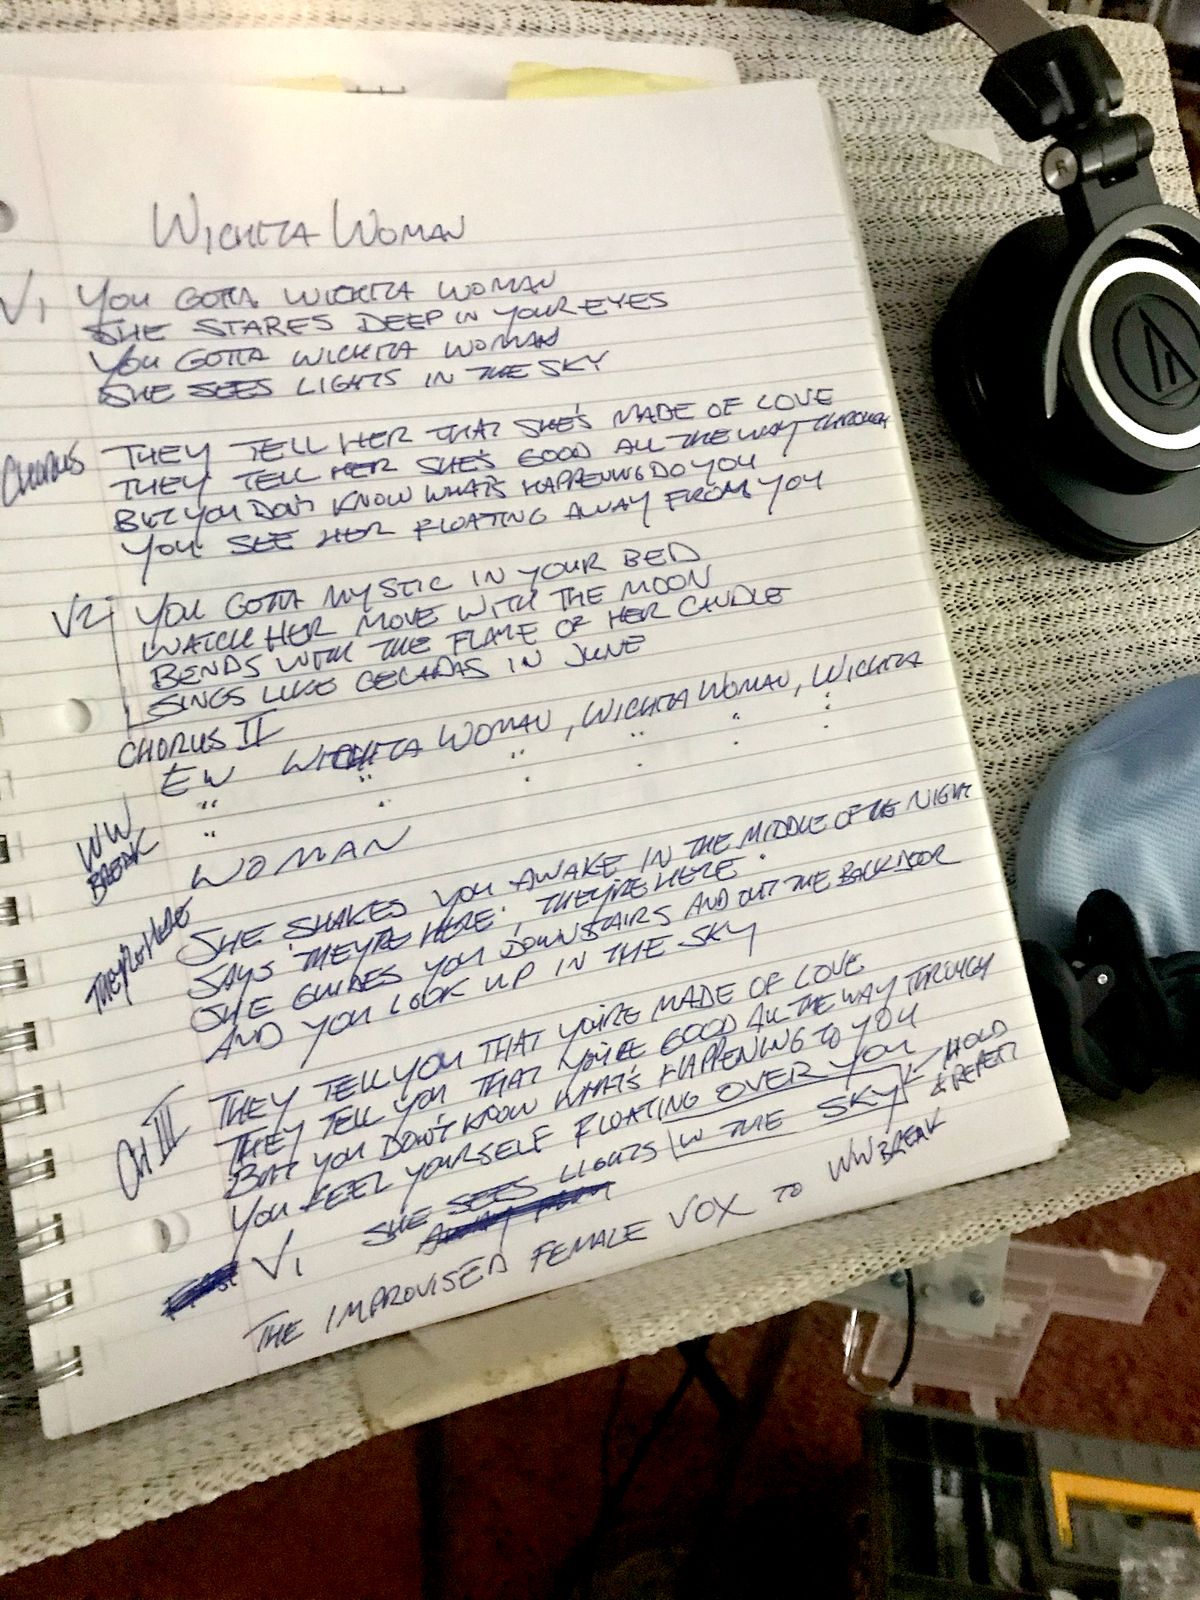 WICHITA WOMAN
V1 YOU GOTTA WICHITA WOMAN
SHE STARES DEEP IN YOUR EYES
YOU GOTTA WICHITA WOMAN
SHE SEES LIGHTS IN THE SKY
CHORUS THEY TELL HER THAT SHE'S MADE OF LOVE
THEY TELL HER SHE'S GOOD ALL THE WAY THROUGH
BUT YOU DON'T KNOW WHAT'S HAPPENING DO YOU
YOU SEE HER FLOATING AWAY FROM YOU
V2 YOU GOTTA MYSTIC IN YOUR BED
WATCH HER MOVE WITH THE MOON
BENDS WITH THE FLAME OF HER CANDLE
SINGS LIKE CECADAS IN JUNE
CHORUS II
EW WICHITA WOMAN, WICHITA WOMAN, WICHITA
" " " " " :
" " " " " "
WW BREAK WOMAN
THEY'RE HERE SHE SHAKES YOU AWAKE IN THE MIDDLE OF THE NIGHT
SAYS 'THEY'RE HERE', 'THEY'RE HERE'
SHE GUIDES YOU DOWNSTAIRS AND OUT THE BACKDOOR
AND YOU LOOK UP IN THE SKY
CH III THEY TELL YOU THAT YOU'RE MADE OF LOVE
THEY TELL YOU THAT YOU'RE GOOD ALL THE WAY THROUGH
BUT YOU DON'T KNOW WHAT'S HAPPENING TO YOU
YOU FEEL YOURSELF FLOATING OVER YOU
V1 SHE SEES LIGHTS IN THE SKY ← HOLD & REPEAT
THE IMPROVISED FEMALE VOX TO WW BREAK